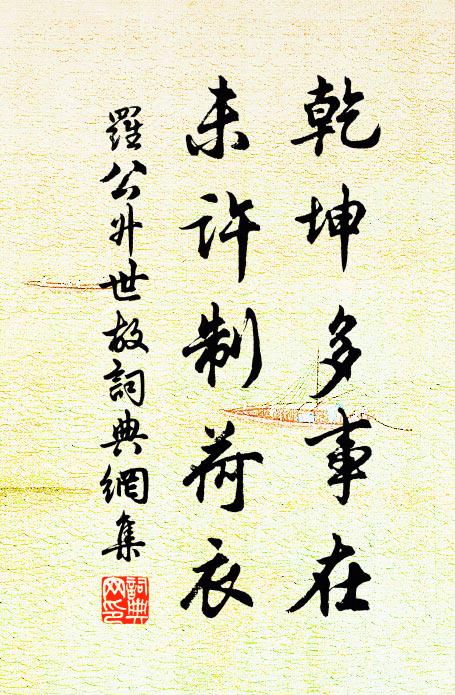 乾坤多事在
未許制荷衣
羅公升世故詞典網集
詞典
网印